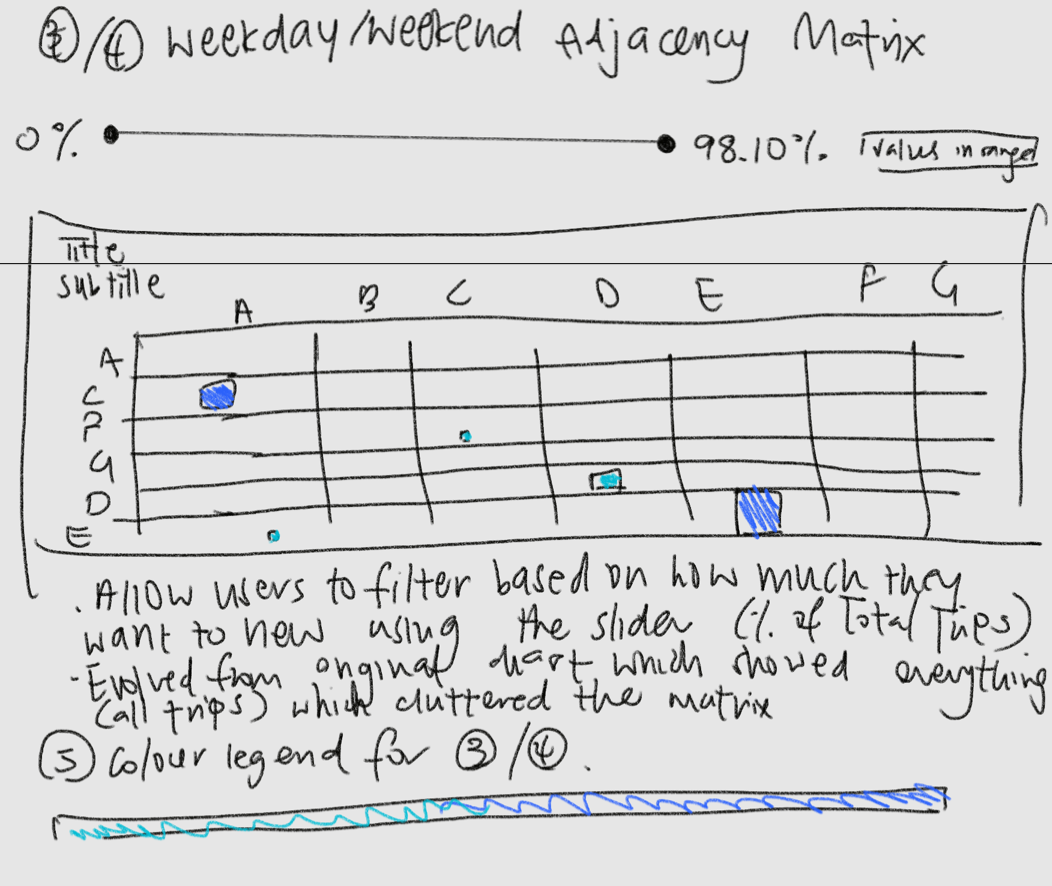 ③/④ weekday/weekend Adjacency Matrix
0% 98.10% values in range
Title
subtitle
A B C D E F G
A
C
F
G
D
E
. Allow users to filter based on how much they
want to new using the slider (% of Total Trips)
- Evolved from original chart which showed everything
(all trips) which cluttered the matrix
⑤ Colour legend for ③/④.